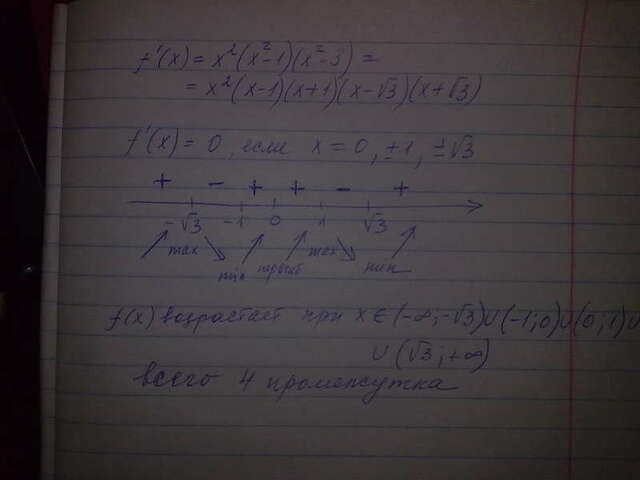 f'(x) = x²(x²-1)(x²-3) =
= x²(x-1)(x+1)(x-√3)(x+√3)
f'(x) = 0, если x = 0, ±1, ±√3
+ - + + - +
-√3 -1 0 1 √3
max min перегиб max min
f(x) возрастает при x ∈ (-∞; -√3) ∪ (-1; 0) ∪ (0; 1) ∪
∪ (√3; +∞)
всего 4 промежутка